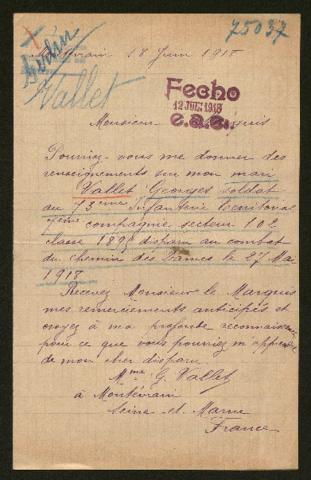 75037
Vallet
18 Juin 1918
Fecho
12 JUIN 1918
e.a.e.
Monsieur le Marquis
Pourriez-vous me donner des
renseignements sur mon mari
Vallet Georges soldat
au 73eme Infanterie territorial
7eme compagnie secteur 102
classe 1898 disparu au combat
du chemin des Dames le 27 Mai
1918
Recevez Monsieur le Marquis
mes remerciements anticipés et
croyez à ma profonde reconnaissance
pour ce que vous pourriez m'apprendre
de mon cher disparu
Mme G. Vallet
à Montévrain
Seine-et-Marne
France